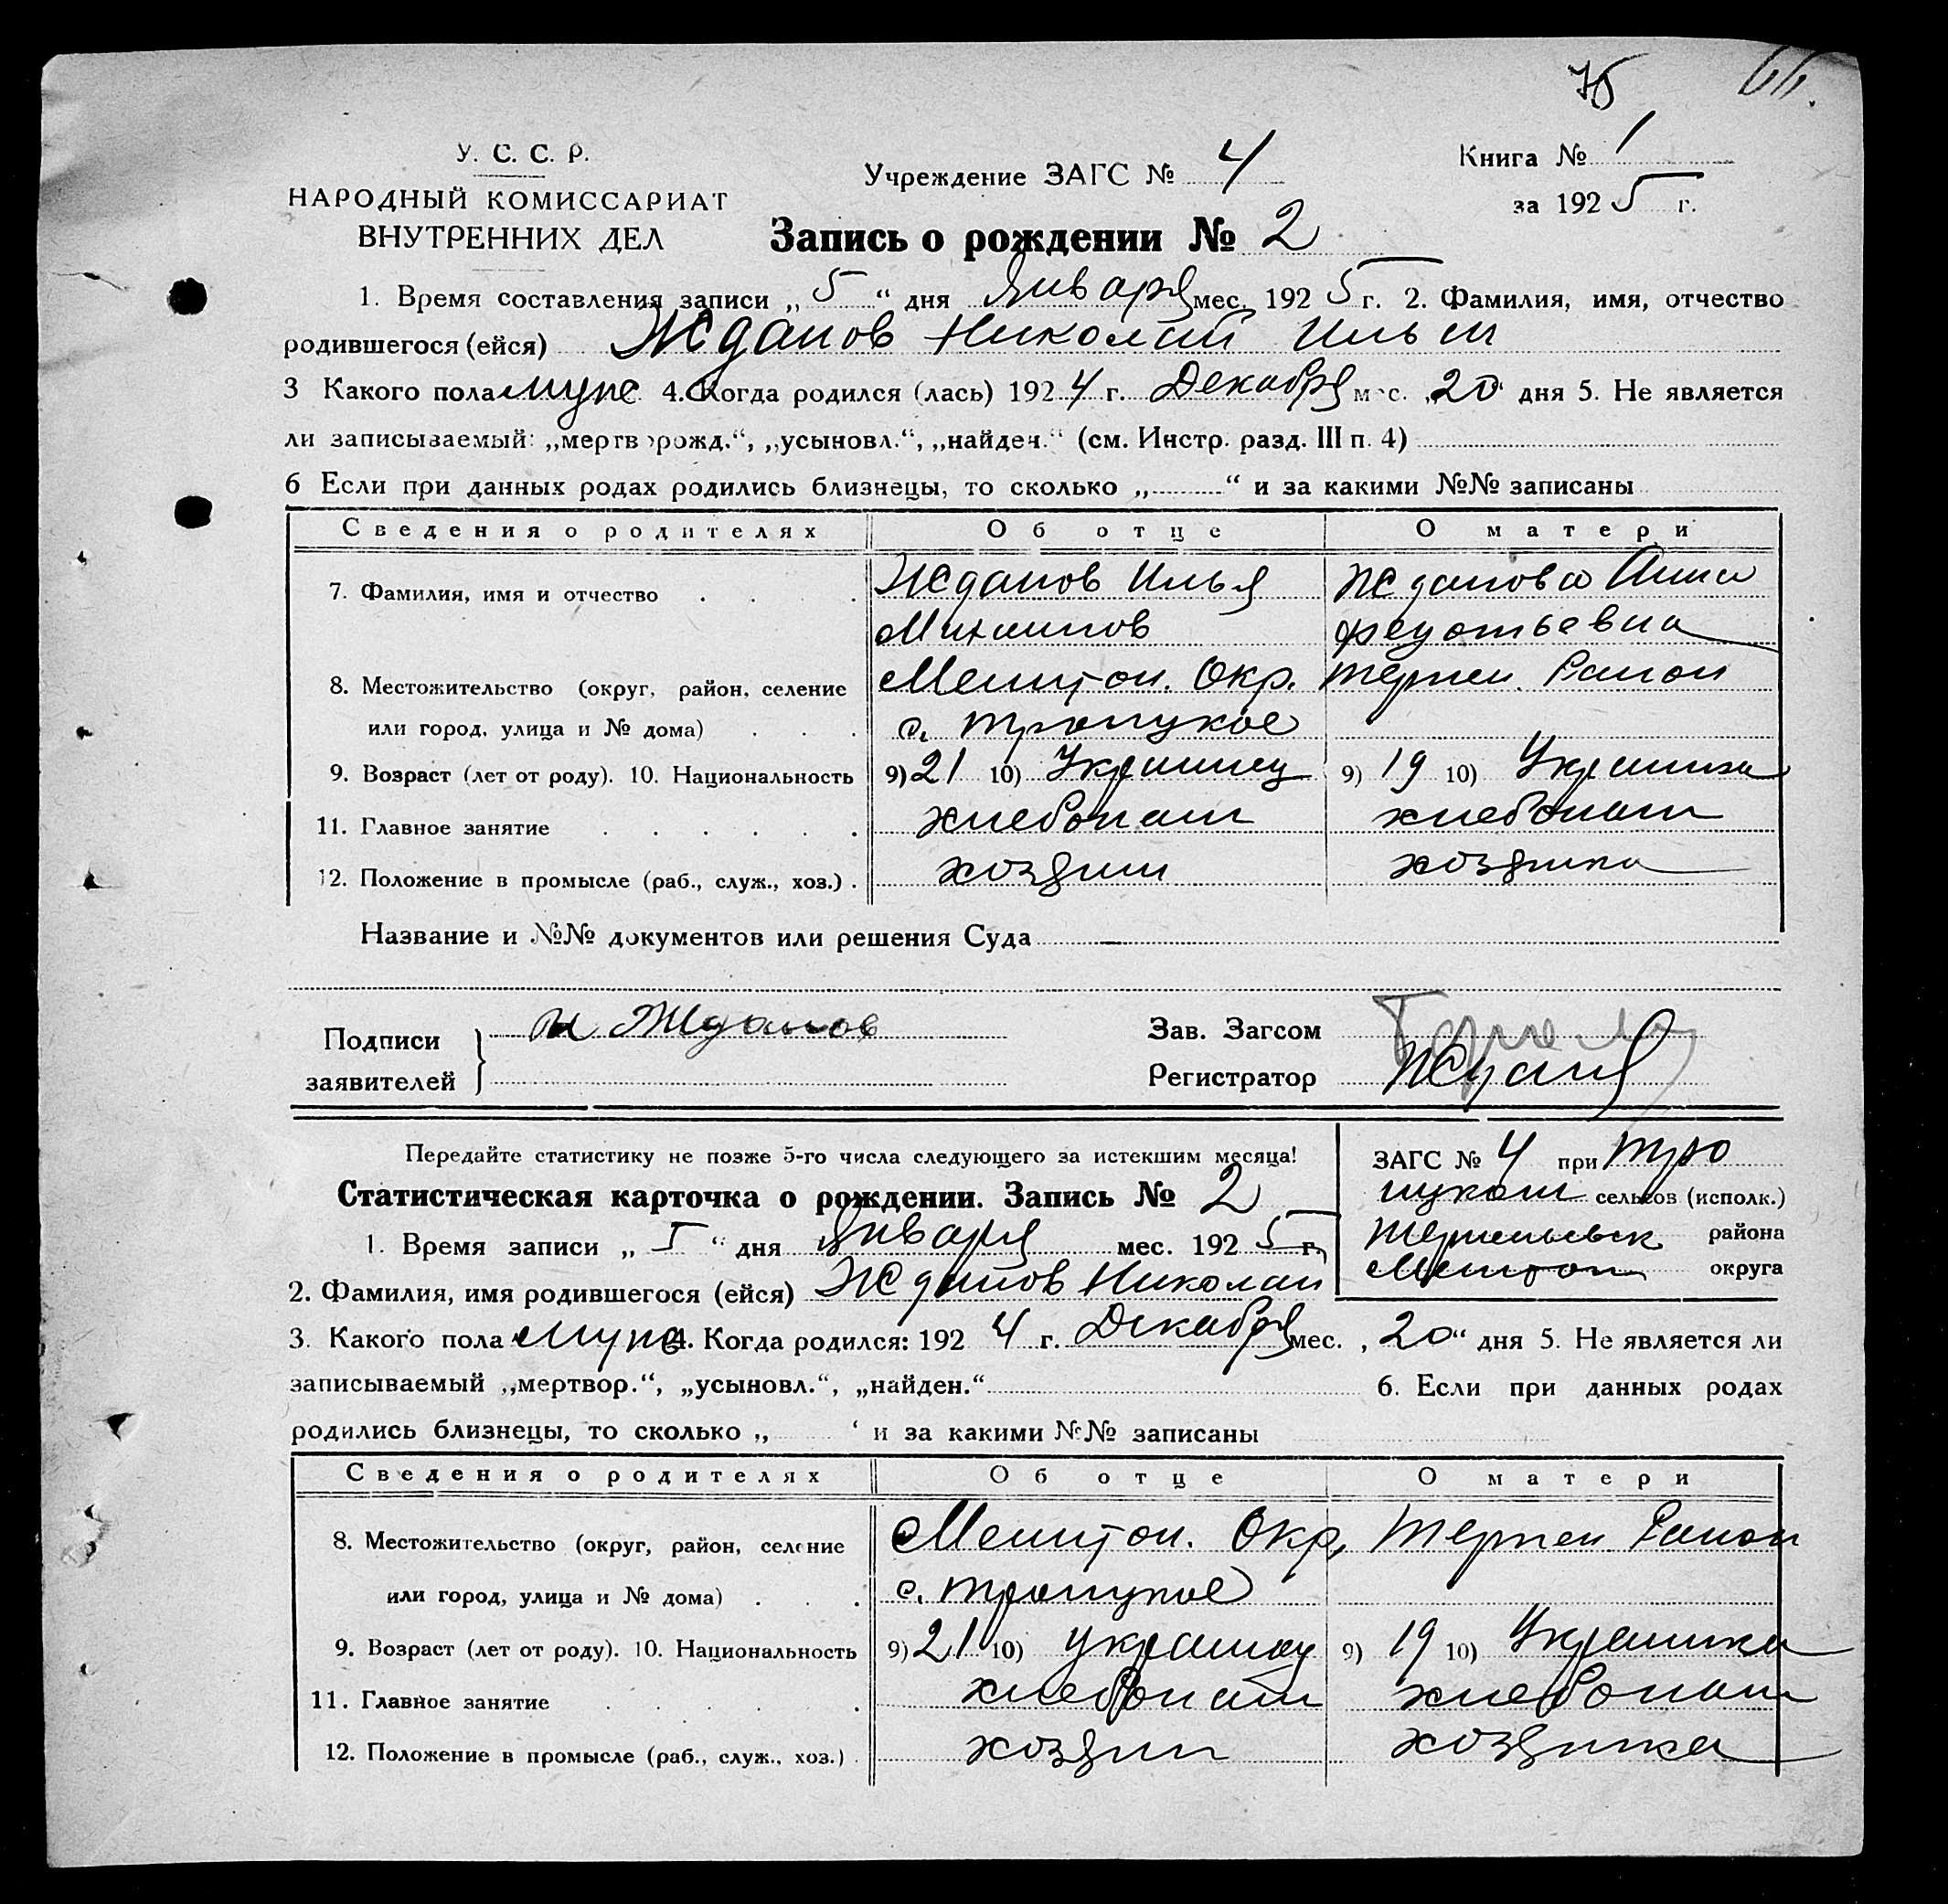 75 66.
У. С. С. Р.
НАРОДНЫЙ КОМИССАРИАТ
ВНУТРЕННИХ ДЕЛ
Учреждение ЗАГС № 4
Книга № 1
за 1925 г.
Запись о рождении № 2
1. Время составления записи „ 5 “ дня Января мес. 1925 г. 2. Фамилия, имя, отчество
родившегося (ейся) Жданов Николай Ильин
3 Какого пола муж. 4. Когда родился (лась) 1924 г. Декабря мес. „20“ дня 5. Не является
ли записываемый: „мертворожд.“, „усыновл.“, „найден.“ (см. Инстр. разд. III п. 4)
6 Если при данных родах родились близнецы, то сколько „ “ и за какими №№ записаны
Сведения о родителях Об отце О матери
7. Фамилия, имя и отчество Жданов Илья Жданова Анна
Михайлов Федотьевна
8. Местожительство (округ, район, селение Мелитоп. Окр. Терпен. Район
или город, улица и № дома) с. Троицкое
9. Возраст (лет от роду). 10. Национальность 9) 21 10) Украинец 9) 19 10) Украинка
11. Главное занятие хлебопаш хлебопаш
12. Положение в промысле (раб., служ., хоз.) хозяин хозяика
Название и №№ документов или решения Суда
Подписи
заявителей
И Жданов
Зав. Загсом
Регистратор
Передайте статистику не позже 5-го числа следующего за истекшим месяца!
Статистическая карточка о рождении. Запись № 2
ЗАГС № 4 при Тро
ицком сельсов (исполк.)
Терпеньевск района
Мелитоп округа
1. Время записи „ 5 “ дня Января мес. 1925 г.
2. Фамилия, имя родившегося (ейся) Жданов Николай
3. Какого пола муж 4. Когда родился: 1924 г. Декабря мес. „20“ дня 5. Не является ли
записываемый „мертвор.“, „усыновл.“, „найден.“ 6. Если при данных родах
родились близнецы, то сколько „ ‘ и за какими №№ записаны
Сведения о родителях Об отце О матери
8. Местожительство (округ, район, селение Мелитоп. Окр. Терпен. Район
или город, улица и № дома) с. Троицкое
9. Возраст (лет от роду). 10. Национальность 9) 21 10) украинец 9) 19 10) Украинка
11. Главное занятие хлебопаш хлебопаш
12. Положение в промысле (раб., служ., хоз.) хозяин хозяика